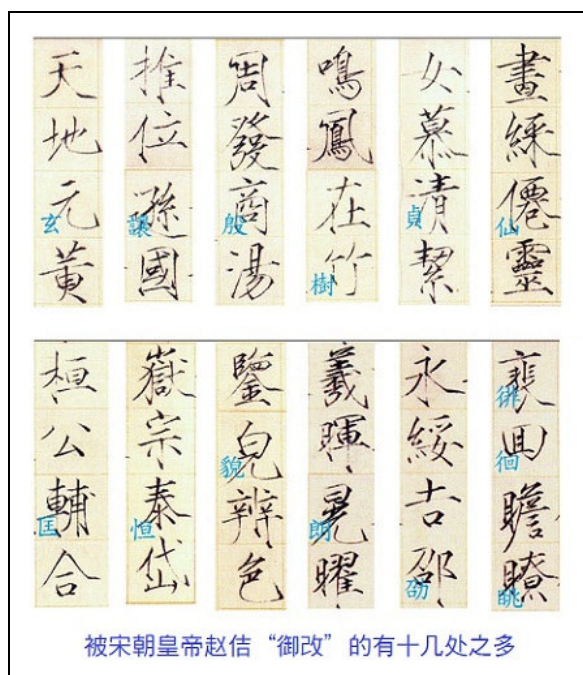 天地元黃
玄
推位遜國
讓
周發商湯
殷
鳴鳳在竹
樹
女慕清絜
貞
畫綵僊靈
仙
桓公輔合
匡
嶽宗泰岱
恒
鑒皃辨色
貌
羲暉晃曜
朗
永綏吉邵
劭
裵回瞻瞭
徘
徊
眺
被宋朝皇帝赵佶“御改”的有十几处之多